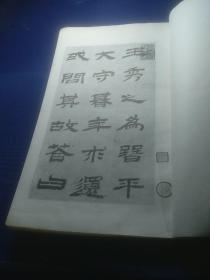 王秀之為晉平
太守暮年求還
或問其故荅曰